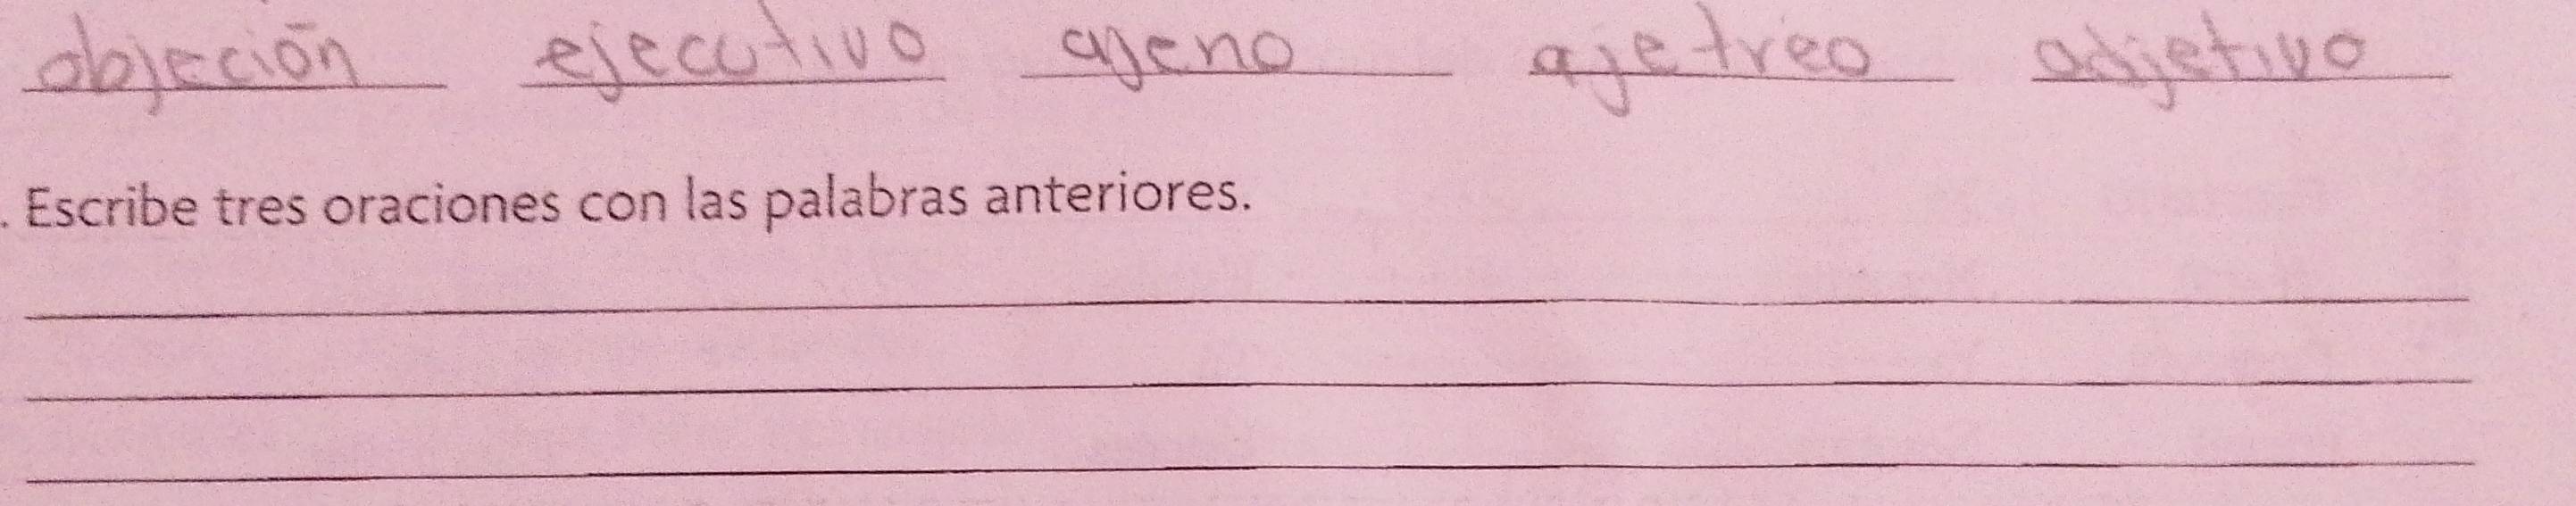 objeción ejecutivo ajeno ajetreo adjetivo
. Escribe tres oraciones con las palabras anteriores.